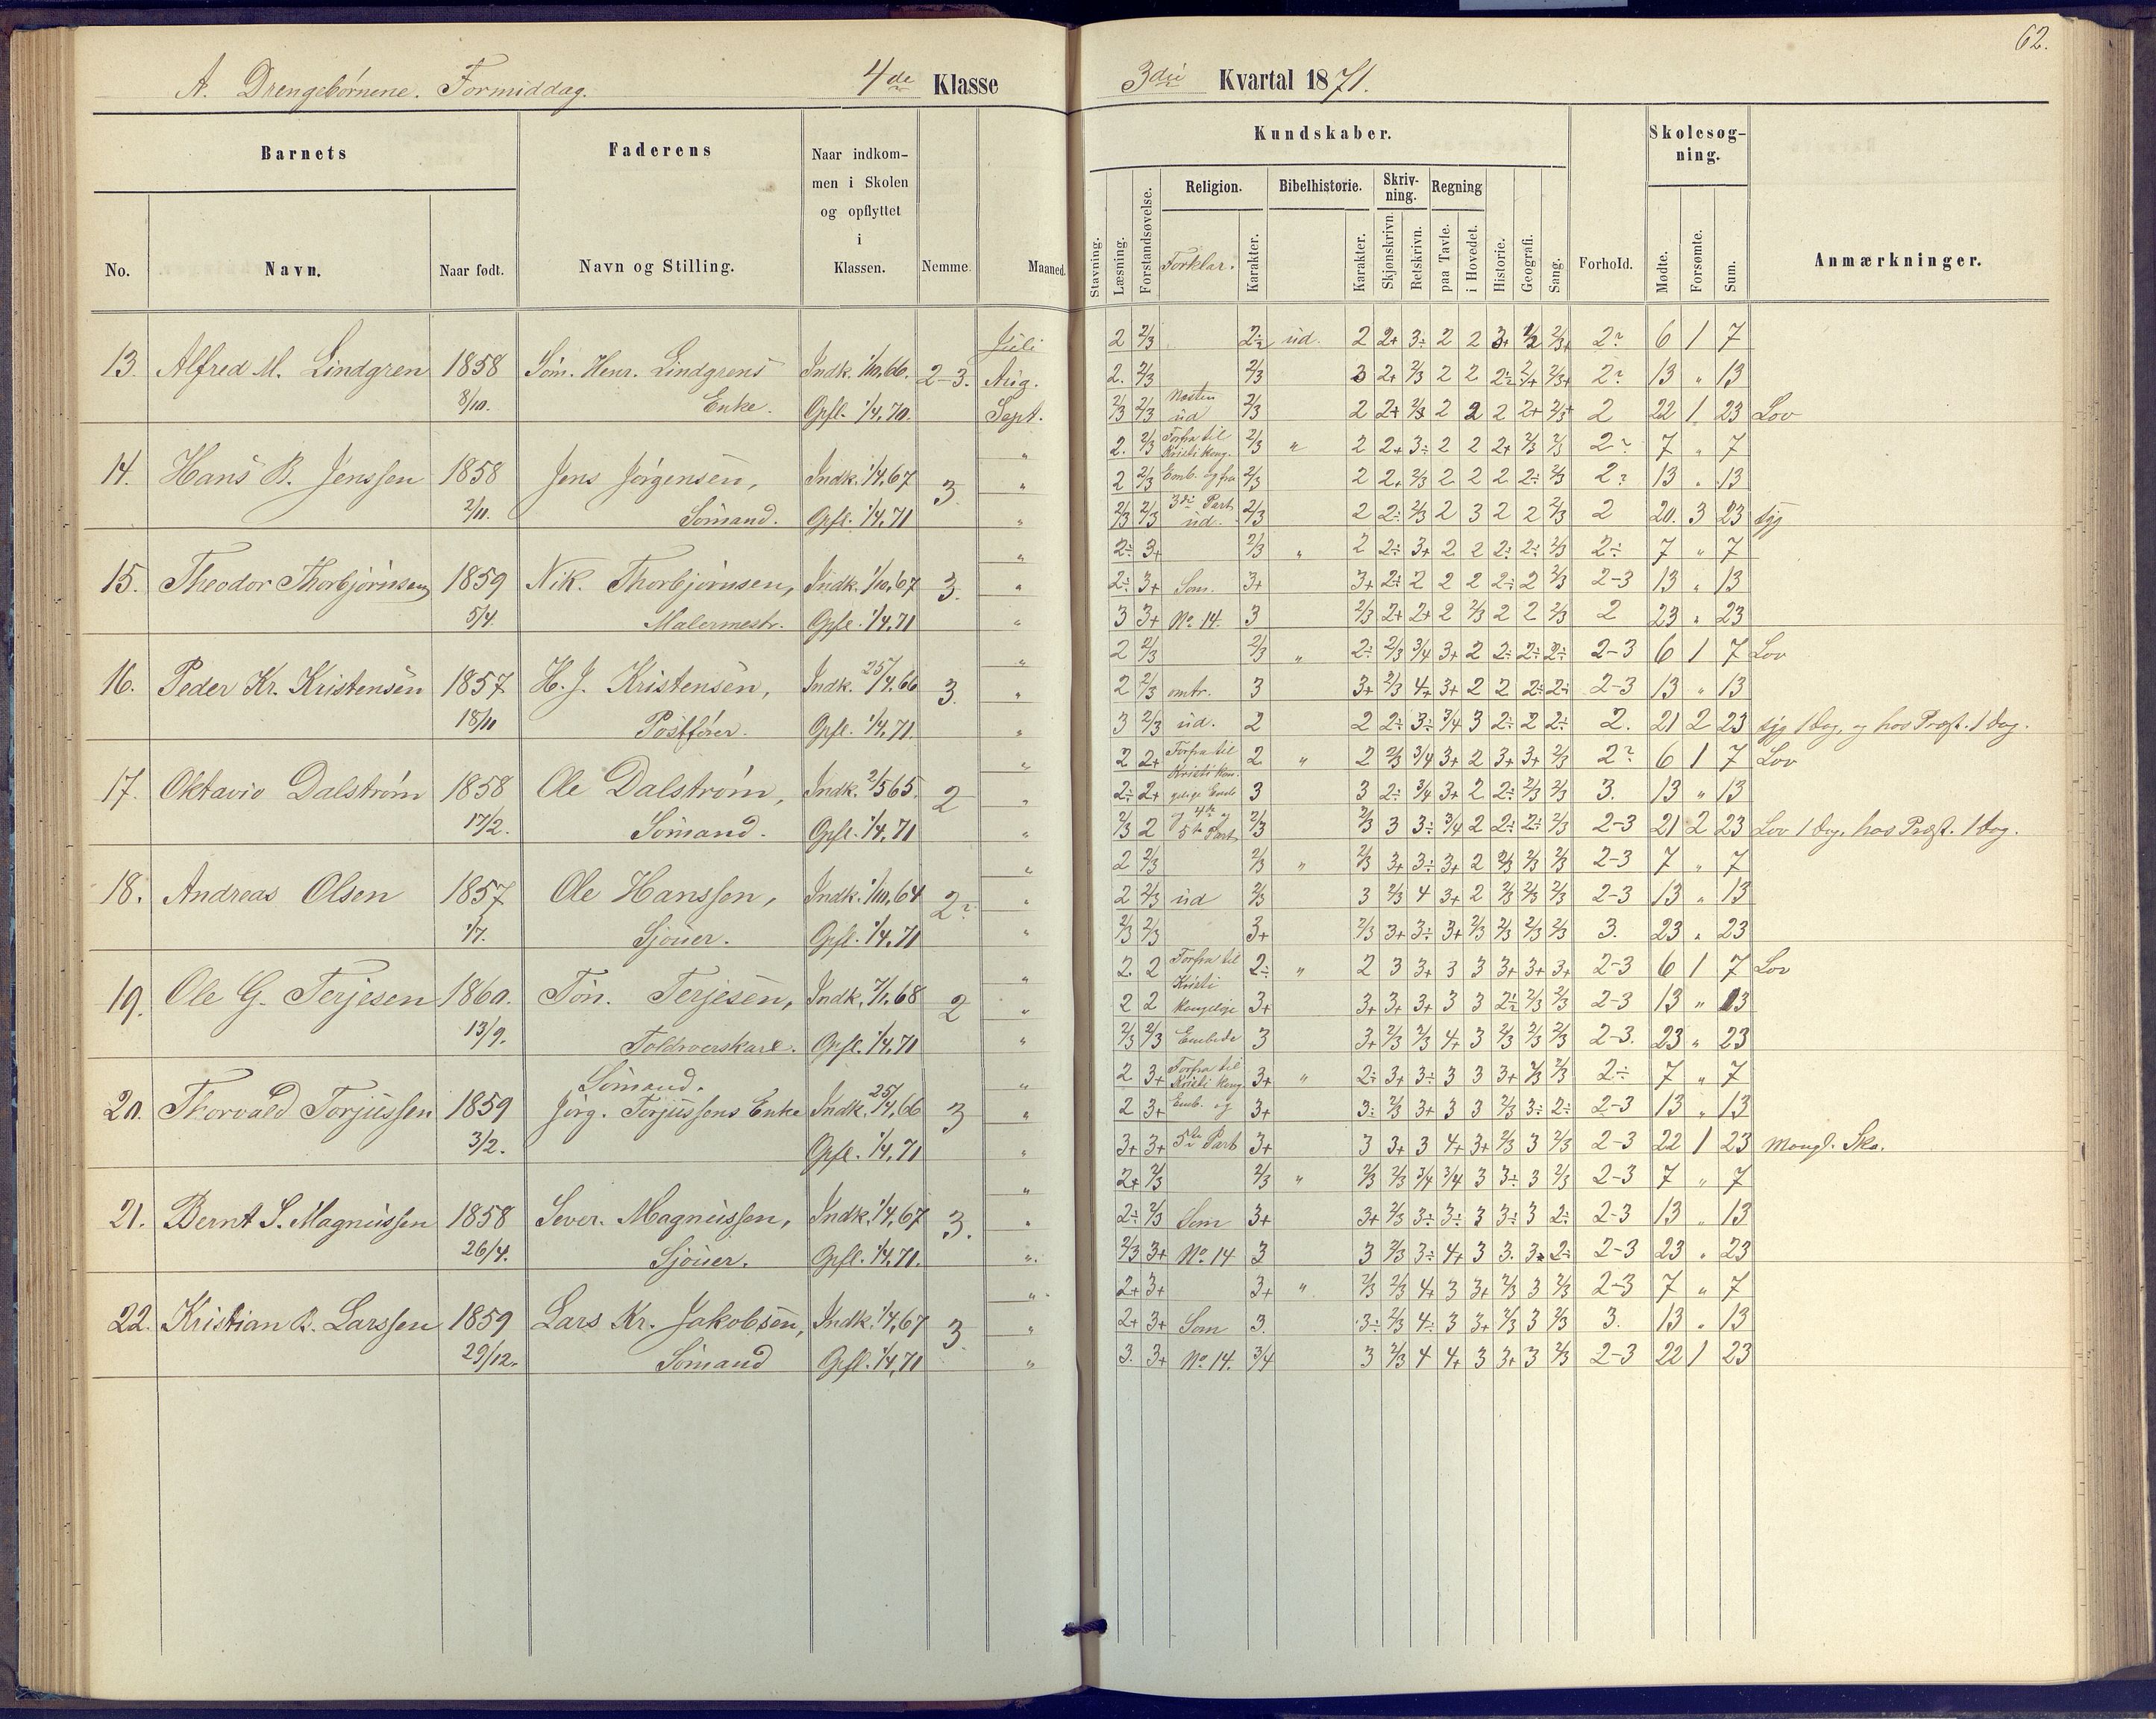 62.
A. Drengebörnene. Formiddag. 4de Klasse 3die Kvartal 1871.
Barnets Faderens Naar indkom- men i Skolen og opflyttet i Klassen. Nemme. Maaned.
No. Navn. Naar født. Navn og Stilling.
Kundskaber. Skolesøg- ning.
Stavning. Læsning. Forstandsøvelse. Religion. Forklar. Karakter. Bibelhistorie. Karakter. Skriv- ning. Skjønskrivn. Retskrivn. Regning paa Tavle. i Hovedet. Historie. Geografi. Sang. Forhold. Mødte. Forsømte. Sum. Anmærkninger.
Juli 2 2/3 2÷ ud. 2 2+ 3÷ 2 2 3+ 2/3+ 2? 6 1 7
13. Alfred M. Lindgren 1858 Söm. Henr. Lindgrens Indk. 1/10,66. 2-3. Aug. 2. 2/3 2/3 3 2+ 2/3 2 2 2÷ 2/3+ 2? 13 " 13
8/10. Enke. Opfl. 1/4,70. Sept. 2/3 2/3 Næsten ud 2/3 2 2+ 2/3 2 2 2 2+ 2/3+ 2 22 1 23 Lov
" 2. 2/3 Forfra til Kristi Kong. 2/3 " 2 2+ 3÷ 2 2 2+ 2/3 2/3 2? 7 " 7
14. Hans B. Jenssen 1858 Jens Jörgensen, Indk. 1/4,67 3. " 2 2/3 Emb. og fra 2/3 2 2+ 2/3 2 2 2 2÷ 2/3 2? 13 " 13
2/11. Sömand. Opfl. 1/4,71 " 2/3 2/3 3die Part ud. 2/3 2 2÷ 2/3 2 3 2 2 2/3 2 20. 3 23 syg
" 2÷ 3+ 2/3 " 2 2÷ 3+ 2 2 2÷ 2÷ 2/3 2÷ 7 " 7
15. Theodor Thorbjörnsen 1859 Nik. Thorbjörnsen, Indk. 1/10,67 3. " 2÷ 3+ Som. 3+ 3+ 2÷ 2 2 2 2÷ 2 2/3 2-3 13 " 13
5/4. Malermestr. Opfl. 1/4,71 " 3 3+ No 14. 3 2/3 2+ 2+ 2 2/3 2 2 2/3 2 23 " 23
" 2 2/3 2/3 " 2÷ 2/3 3/4 3+ 2 2÷ 2÷ 2÷ 2-3 6 1 7 Lov
16. Peder Kr. Kristensen 1857 H. J. Kristensen, Indk. 25/4,66 3. " 2 2/3 omtr. 3 3+ 2/3 4+ 3+ 2 2 2÷ 2÷ 2-3 13 " 13
18/11 Postförer. Opfl. 1/4,71. " 3 2/3 ud. 2 2 2÷ 3÷ 3/4 3 2÷ 2 2÷ 2. 21 2 23 syg 1 Dag, og hos Præst. 1 Dag.
" 2 2+ Forfra til 2 " 2 2/3 3/4 3+ 2 3+ 3+ 2/3 2? 6 1 7 Lov
17. Oktavio Dalström 1858 Ole Dalström, Indk. 2/5 65. 2 " 2÷ 2+ Kristi Kon- gelige Emb 3 3 2÷ 3/4 3+ 2 2÷ 2/3 2/3 3. 13 " 13
17/2. Sömand. Opfl. 1/4,71 " 2/3 2 og 4de og 5te Part 2/3 2/3 3 3÷ 3/4 2 2÷ 2÷ 2/3 2-3 21 2 23 Lov 1 Dag, hos Præst. 1 Dag.
" 2 2/3 2/3 " 2/3 3+ 3÷ 3+ 2 2/3 2/3 2/3 2-3 7 " 7
18. Andreas Olsen 1857 Ole Hanssen, Indk. 1/10,64 2? " 2 2/3 ud 2/3 3 2/3 4 3+ 2 2/3 2/3 2/3 2-3 13 " 13
1/7. Sjouer. Opfl. 1/4,71 " 2/3 2/3 3+ 2/3 3+ 3÷ 3+ 2/3 2/3 2/3 2/3 3. 23 " 23
" 2. 2 Forfra til 2÷ " 2 3 3+ 3 3 3+ 3+ 3+ 2-3 6 1 7 Lov
19. Ole G. Terjesen 1860. Tön. Terjesen, Indk. 7/1,68 2 " 2 2 Kristi Kongelige 3+ 3+ 3+ 3+ 3 3 2÷ 2/3 2/3 2-3 13 " 13
13/9. Toldroerskarl. Opfl. 1/4,71 " 2/3 2/3 Embede 3 3+ 2/3 2/3 4+ 3 2/3 2/3 2/3 2-3. 23 " 23
Sömand. " 2 3+ Forfra til Kristi Kong 3+ " 2÷ 3+ 3÷ 3 3 3+ 2/3 2/3 2÷ 7 " 7
20. Thorvald Torjussen 1859 Jörg. Torjussens Enke Indk. 25/4,66 3 " 2 3+ Emb. og 3+ 3÷ 2/3 3+ 3 3 2/3 3÷ 2÷ 2-3 13 " 13
3/2. Opfl. 1/4,71 " 3+ 3+ 5te Part 3+ 3 3+ 3 4+ 3+ 2/3 3 2/3 2-3 22 1 23 Mangl. Sko.
" 2+ 2/3 2/3 " 2/3 2/3 3/4 3/4 3 3÷ 3 2/3 2-3 7 " 7
21. Bernt S. Magnussen 1858 Sever. Magnussen, Indk. 1/4,67 3. " 2÷ 2/3 Som 3+ 3+ 2/3 3÷ 3÷ 3 3÷ 3 2÷ 2-3 13 " 13
26/4. Sjouer. Opfl. 1/4,71. " 2/3 3+ No 14 3 3 2/3 3÷ 4+ 3 3. 3÷ 2÷ 2-3 23 " 23
" 2+ 3+ 3+ " 2/3 2/3 4+ 3 3+ 2/3 3 2/3 2-3 7 " 7
22. Kristian B. Larssen 1859 Lars Kr. Jakobsen, Indk. 1/4,67 3. " 2+ 3+ Som 3. 3÷ 2/3 4÷ 3 3+ 2/3 3 2/3 3. 13 " 13
29/12. Sömand Opfl. 1/4,71 " 3. 3+ No 14. 3/4 3 2/3 4 4+ 3 3+ 3 2/3 2-3 22 1 23